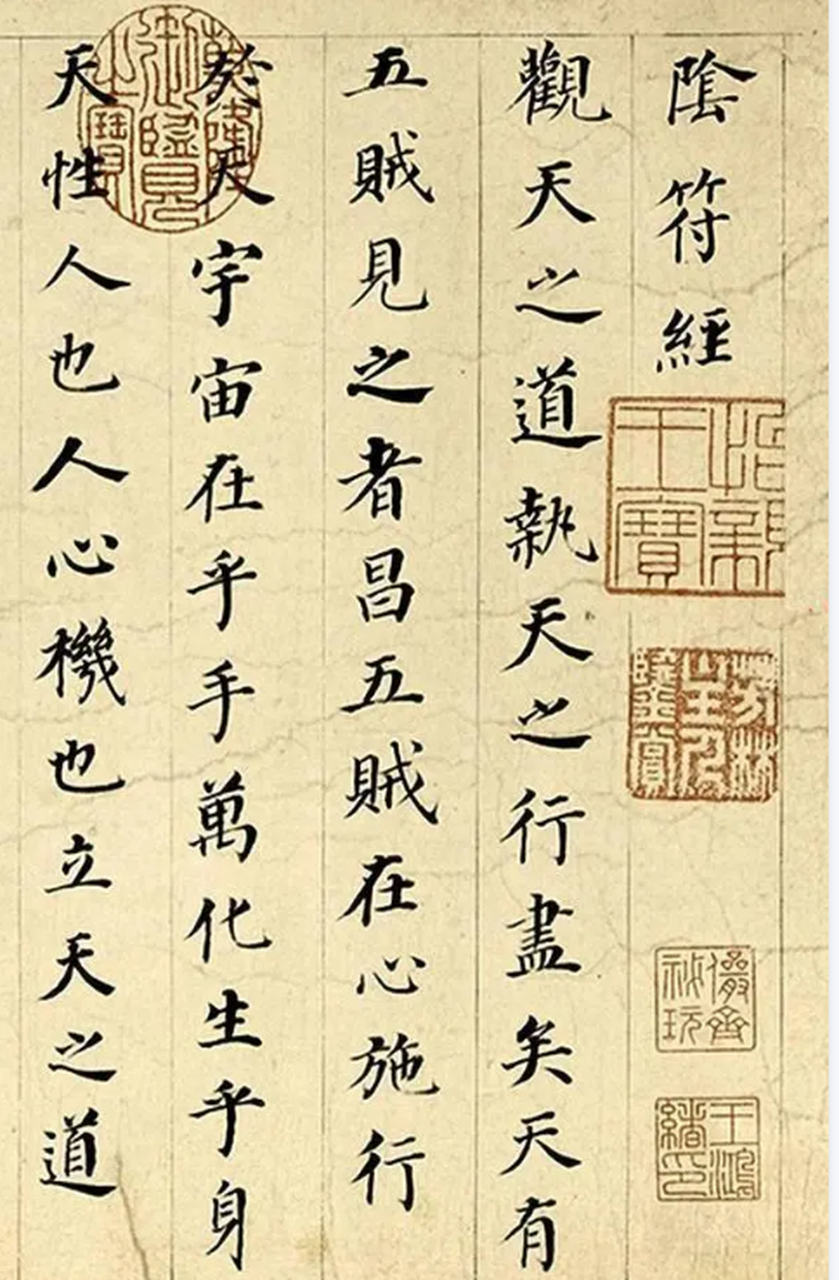 陰符經
觀天之道執天之行盡矣天有
五賊見之者昌五賊在心施行
於天宇宙在乎手萬化生乎身
天性人也人心機也立天之道